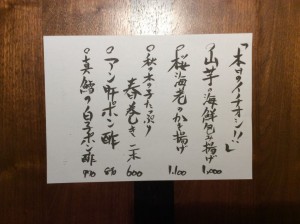 「本日のイチオシ!!」
○山芋の海鮮包み揚げ 1,000
○桜海老のかき揚げ 1,100
○秋の木の子たっぷり
春巻き 一本 600
○アン肝ポン酢 850
○真鱈の白子ポン酢 950